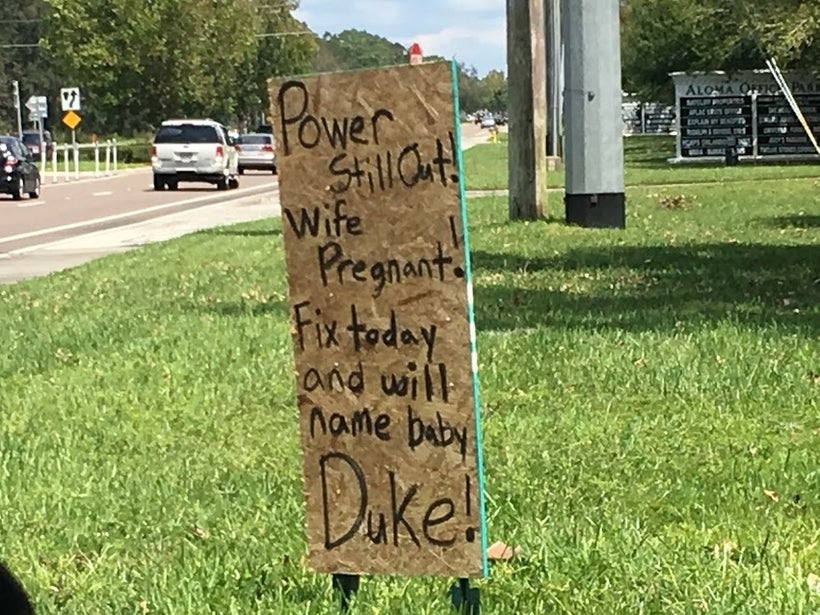 Power
Still Out!
Wife
Pregnant!
Fix today
and will
name baby
Duke!
ALOMA OFFICE PARK